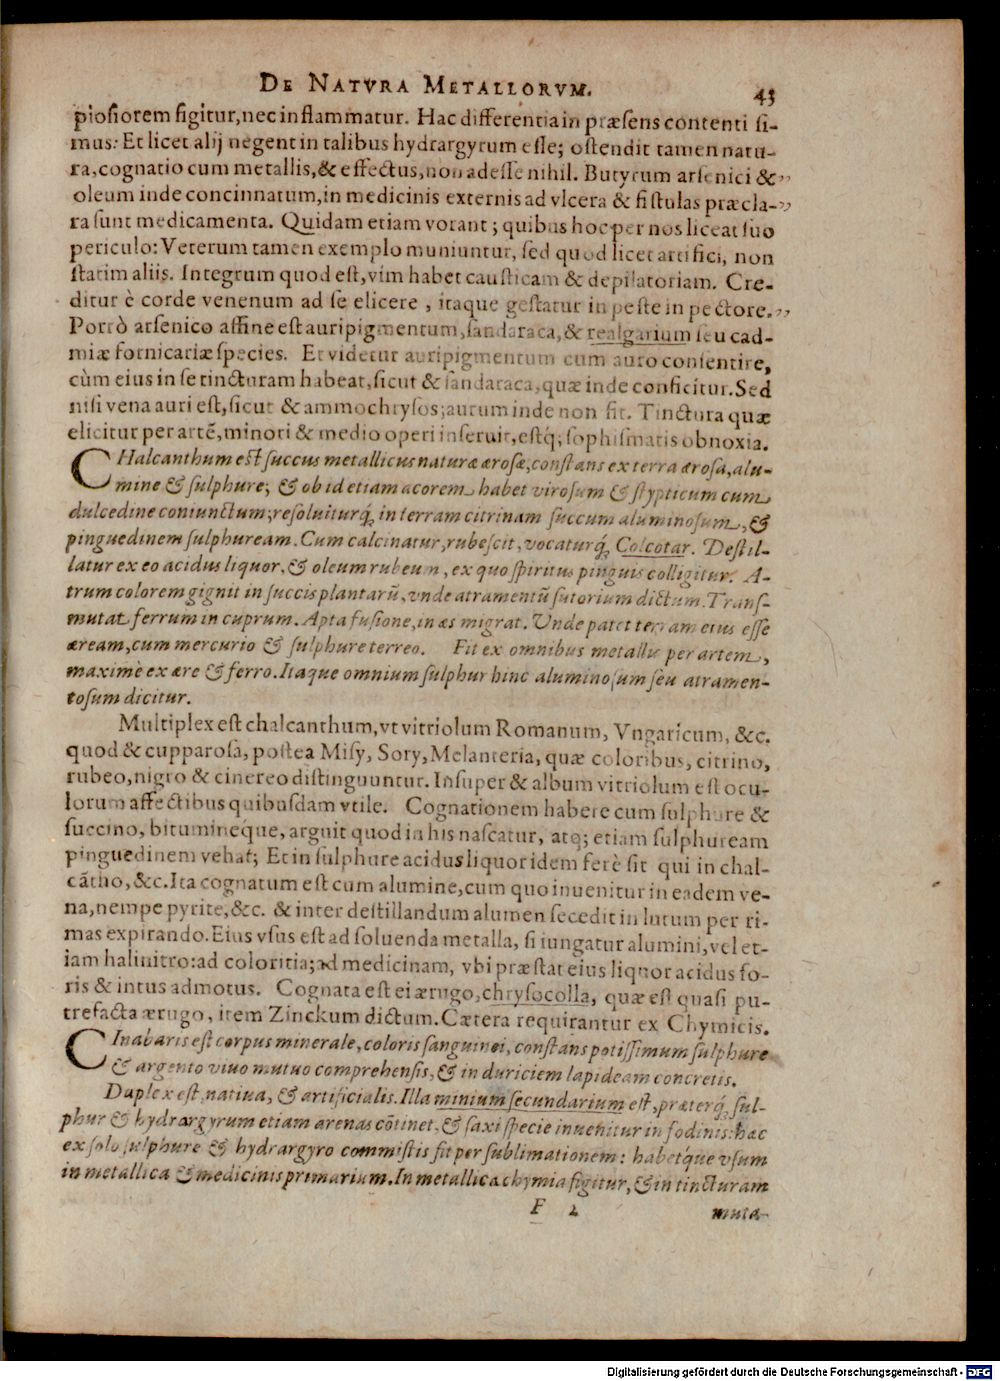 DE NATVRA METALLORVM. 43
piosiorem figitur, nec inflammatur. Hac differentia in præsens contenti si-
mus: Et licet alij negent in talibus hydrargyrum esse; ostendit tamen natu-
ra, cognatio cum metallis, & effectus, non adesse nihil. Butyrum arsenici & „
oleum inde concinnatum, in medicinis externis ad vlcera & fistulas præcla- „
ra sunt medicamenta. Quidam etiam vorant; quibus hoc per nos liceat suo
periculo: Veterum tamen exemplo muniuntur, sed quod licet artifici, non
statim aliis. Integrum quod est, vim habet causticam & depilatoriam. Cre-
ditur è corde venenum ad se elicere, itaque gestatur in peste in pectore. „
Porrò arsenico affine est auripigmentum, sandaraca, & realgarium seu cad-
miæ fornicariæ species. Et videtur auripigmentum cum auro consentire,
cùm eius in se tincturam habeat, sicut & sandaraca, quæ inde conficitur. Sed
nisi vena auri est, sicut & ammochrysos; aurum inde non fit. Tinctura quæ
elicitur per artẽ, minori & medio operi inseruit, estq́; sophismatis obnoxia.
CHalcanthum est succus metallicus naturæ ærosæ, constans ex terra ærosa, alu-
mine & sulphure; & ob id etiam acorem habet virosum & stypticum cum
dulcedine coniunctum; resoluiturq́; in terram citrinam succum aluminosum, &
pinguedinem sulphuream. Cum calcinatur, rubescit, vocaturq́; Colcotar. Destil-
latur ex eo acidus liquor, & oleum rubeum, ex quo spiritus pinguis colligitur. A-
trum colorem gignit in succis plantarũ, vnde atramentũ sutorium dictum. Trans-
mutat ferrum in cuprum. Apta fusione, in æs migrat. Unde patet terram eius esse
æream, cum mercurio & sulphure terreo. Fit ex omnibus metallis per artem,
maximè ex ære & ferro. Itaque omnium sulphur hinc aluminosum seu atramen-
tosum dicitur.
Multiplex est chalcanthum, vt vitriolum Romanum, Vngaricum, &c.
quod & cupparosa, postea Misy, Sory, Melanteria, quæ coloribus, citrino,
rubeo, nigro & cinereo distinguuntur. Insuper & album vitriolum est ocu-
lorum affectibus quibusdam vtile. Cognationem habere cum sulphure &
succino, bitumineque, arguit quod in his nascatur, atq; etiam sulphuream
pinguedinem vehat; Et in sulphure acidus liquor idem ferè sit qui in chal-
cãtho, &c. Ita cognatum est cum alumine, cum quo inuenitur in eadem ve-
na, nempe pyrite, &c. & inter destillandum alumen secedit in lutum per ri-
mas expirando. Eius vsus est ad soluenda metalla, si iungatur alumini, vel et-
iam halinitro: ad coloritia; ad medicinam, vbi præstat eius liquor acidus fo-
ris & intus admotus. Cognata est ei ærugo, chrysocolla, quæ est quasi pu-
trefacta ærugo, item Zinckum dictum. Cætera requirantur ex Chymicis.
CInabaris est corpus minerale, coloris sanguinei, constans potissimum sulphure
& argento viuo mutuo comprehensis, & in duriciem lapideam concretis.
Duplex est, natiua, & artificialis. Illa minium secundarium est, præterq́; sul-
phur & hydrargyrum etiam arenas cõtinet, & saxi specie inuenitur in fodinis: hæc
ex solo sulphure & hydrargyro commistis fit per sublimationem: habetque vsum
in metallica & medicinis primarium. In metallica chymia figitur, & in tincturam
F 2 muta-
Digitalisierung gefördert durch die Deutsche Forschungsgemeinschaft - DFG